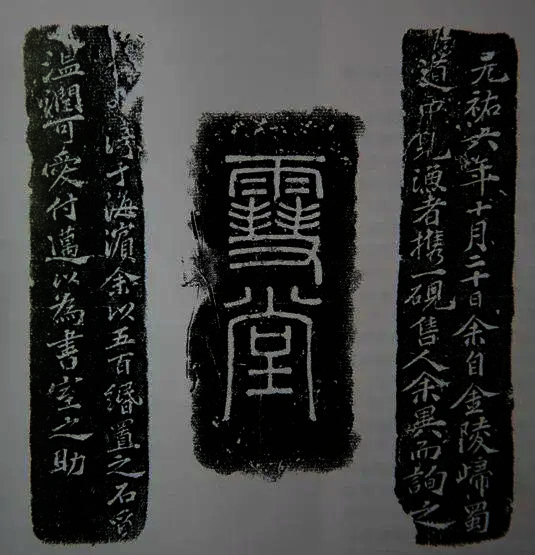 元祐六年十月二十日余自金陵歸蜀
道中見漁者携一硯售人余異而詢之
雪堂
得于海濱余以五百緡置之石
温潤可愛付邁以為書室之助